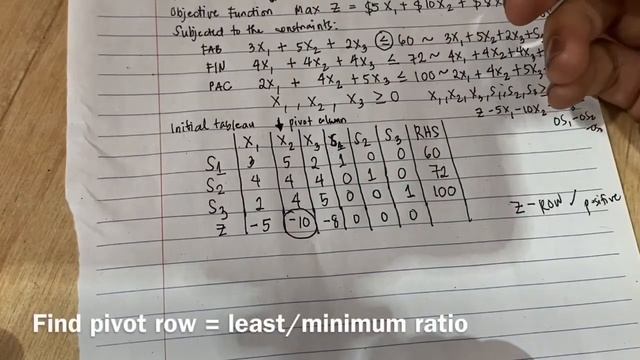 Objective Function Max Z = $5X₁ + $10X₂ + $8X
Subjected to the constraints:
FAB 3X₁ + 5X₂ + 2X₃ ≤ 60 ~ 3X₁ + 5X₂ + 2X₃ + S
FIN 4X₁ + 4X₂ + 4X₃ ≤ 72 ~ 4X₁ + 4X₂ + 4X₃ +
PAC 2X₁ + 4X₂ + 5X₃ ≤ 100 ~ 2X₁ + 4X₂ + 5X₃
X₁, X₂, X₃ ≥ 0 X₁, X₂, X₃, S₁, S₂, S₃ ≥
Z - 5X₁ - 10X₂ -
0S₁ - 0S₂
-0S
Initial tableau ↓ pivot column
X₁ X₂ X₃ S₁ S₂ S₃ RHS
S₁ 3 5 2 1 0 0 60
S₂ 4 4 4 0 1 0 72
S₃ 2 4 5 0 0 1 100
Z -5 -10 -8 0 0 0
Z-ROW / positive
Find pivot row = least/minimum ratio